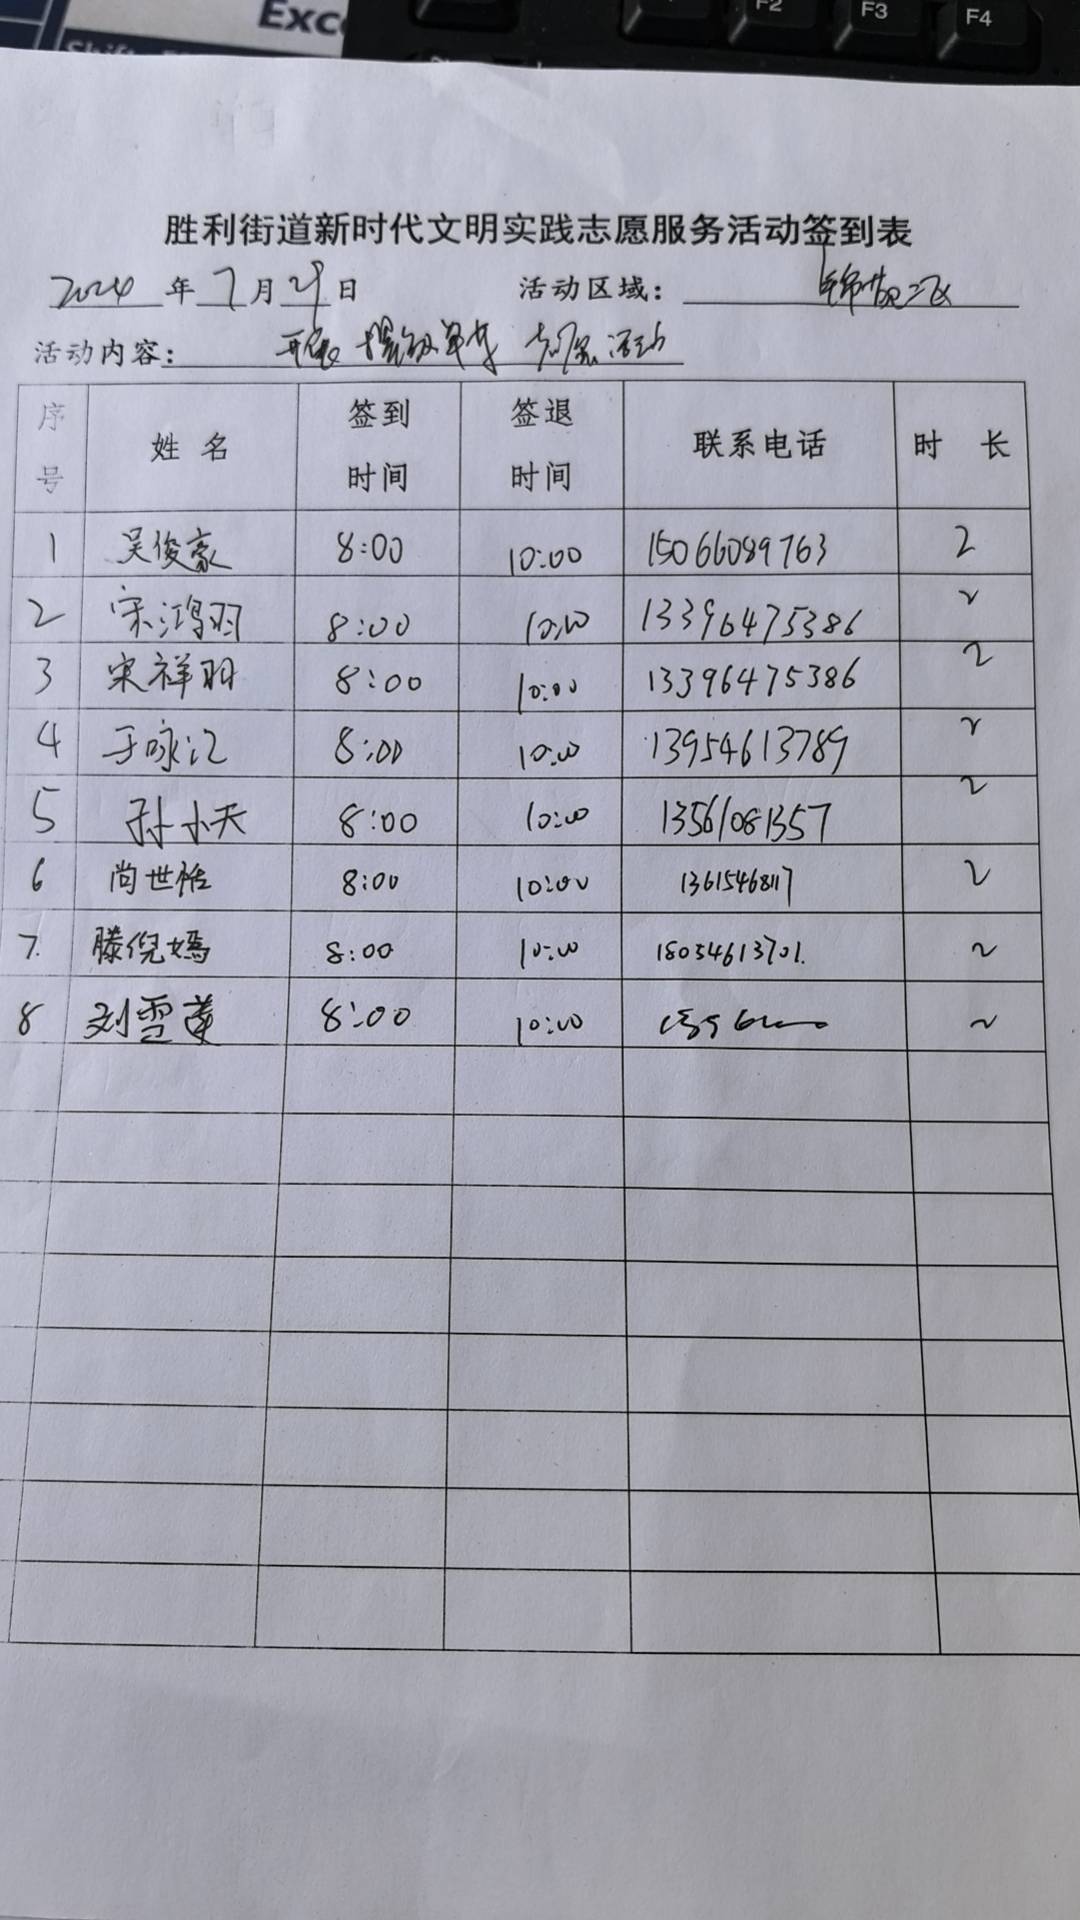 Exc
F2
F3
F4
Shift
胜利街道新时代文明实践志愿服务活动签到表
2024 年 7 月 29 日 活动区域: 锦苑二区
活动内容: 开展 摆放单车 志愿活动
序号 姓名 签到时间 签退时间 联系电话 时长
1 吴俊豪 8:00 10:00 15066089763 2
2 宋鸿羽 8:00 10:00 13396475386 2
3 宋祥羽 8:00 10:00 13396475386 2
4 于咏江 8:00 10:00 13954613789 2
5 孙小天 8:00 10:00 13561081357 2
6 尚世恬 8:00 10:00 1361546817 2
7. 滕倪嫣 8:00 10:00 18054613701. 2
8 刘雪莲 8:00 10:00 2